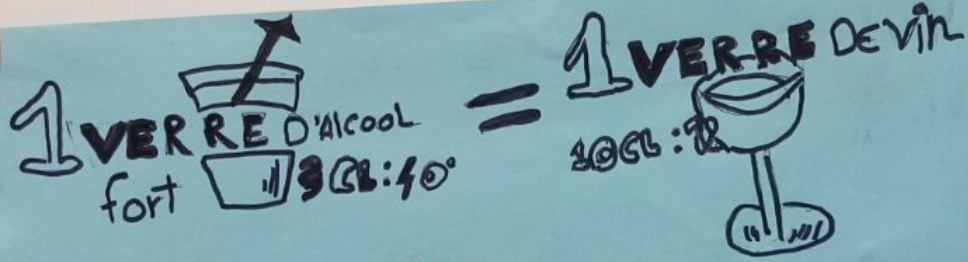 1 VERRE D'AlcooL
fort 3CL:40°
=
1 VERRE DE Vin
10CL:12